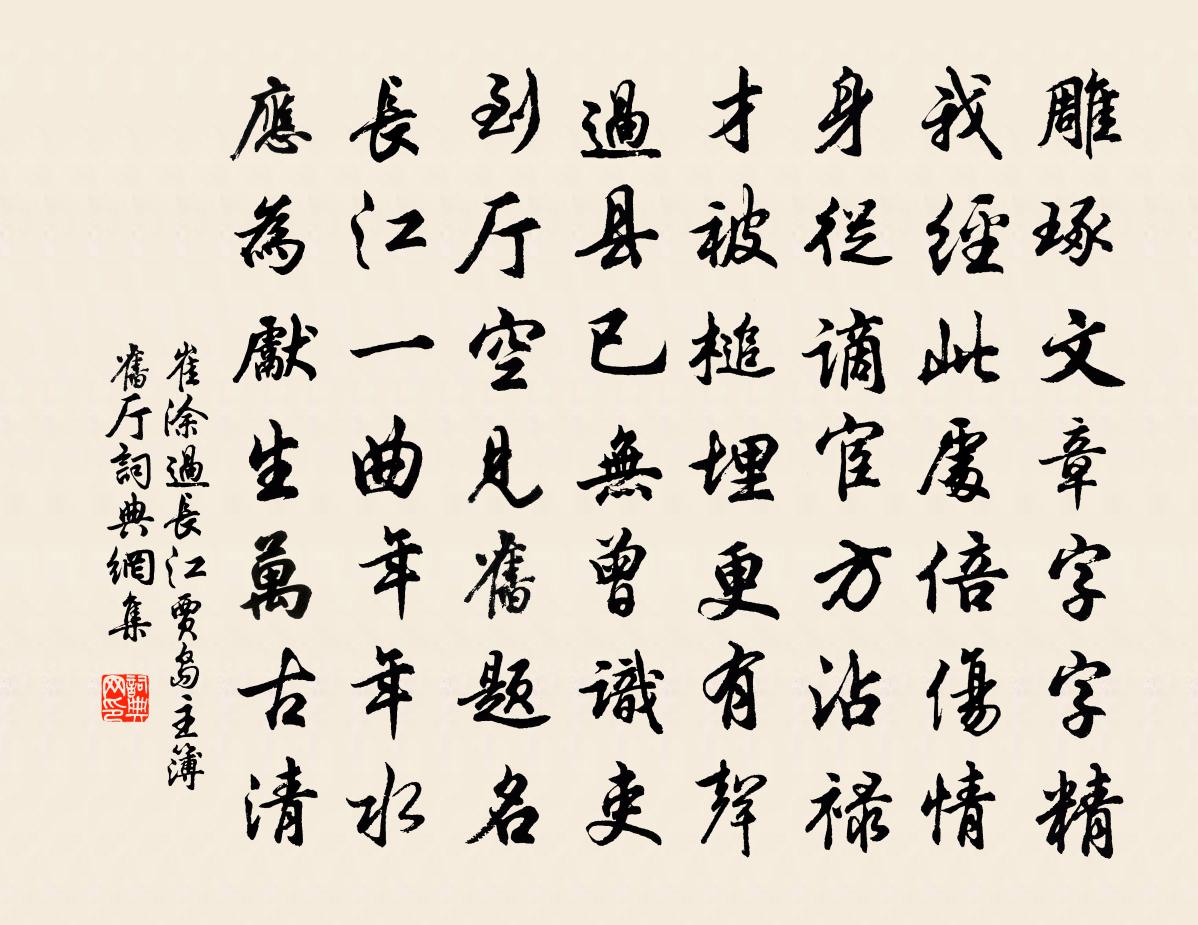 雕琢文章字字精
我經此處倍傷情
身從謫宦方沾祿
才被槌埋更有聲
過县已無曾識吏
到厅空見舊题名
長江一曲年年水
應為獻生萬古清
崔涂過長江賈岛主簿
舊厅詞典網集
詞典网印